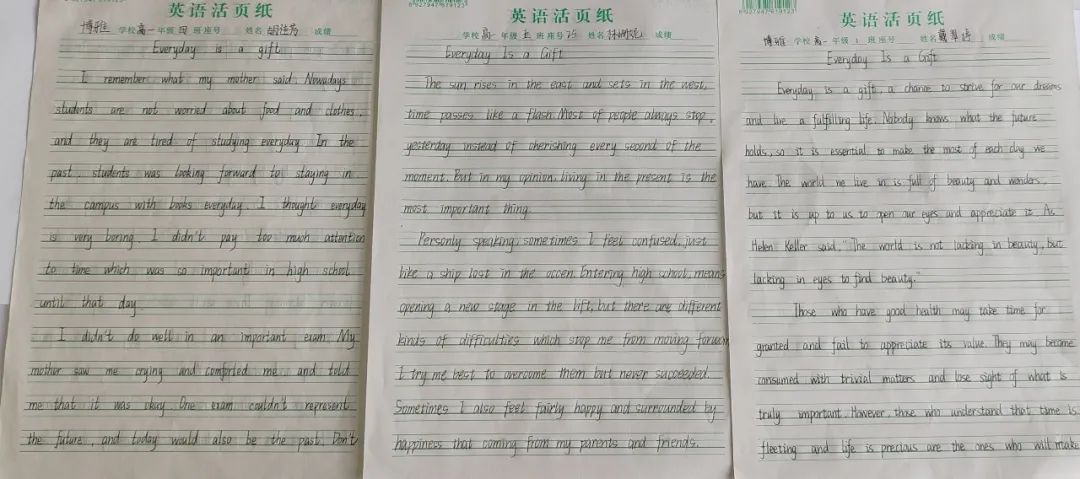 英语活页纸
博雅 学校 高一 年级 班 座号 姓名 成绩
Everyday is a gift
I remember what my mother said. Nowadays
students are not worried about food and clothes,
and they are tired of studying everyday. In the
past, students was looking forward to staying in
the campus with books everyday. I thought everyday
is very boring. I didn't pay too much attention
to time which was so important in high school
until that day.
I didn't do well in an important exam. My
mother saw me crying and comforted me and told
me that it was okay. One exam couldn't represent
the future, and today would also be the past. Don't
英语活页纸
学校 高一 年级 班 座号 姓名 成绩
Everyday Is a Gift
The sun rises in the east and sets in the west,
time passes like a flash. Most of people always stop
yesterday instead of cherishing every second of the
moment. But in my opinion, living in the present is the
most important thing.
Personly speaking, sometimes I feel confused, just
like a ship lost in the occen. Entering high school, means
opening a new stage in the lift, but there are different
kinds of difficulties which stop me from moving forwar
I try me best to overcome them but never succeeded.
Sometimes I also feel fairly happy and surrounded by
happiness that coming from my parents and friends.
6927947679123
英语活页纸
博雅 学校 高一 年级 1 班 座号 姓名 成绩
Everyday Is a Gift
Everyday is a gift, a chance to strive for our dreams
and live a fulfilling life. Nobody knows what the future
holds, so it is essential to make the most of each day we
have. The world we live in is full of beauty and wonders,
but it is up to us to open our eyes and appreciate it. As
Helen Keller said, "The world is not lacking in beauty, but
lacking in eyes to find beauty."
Those who have good health may take time for
granted and fail to appreciate its value. They may become
consumed with trivial matters and lose sight of what is
truly important. However, those who understand that time is
fleeting and life is precious are the ones who will make